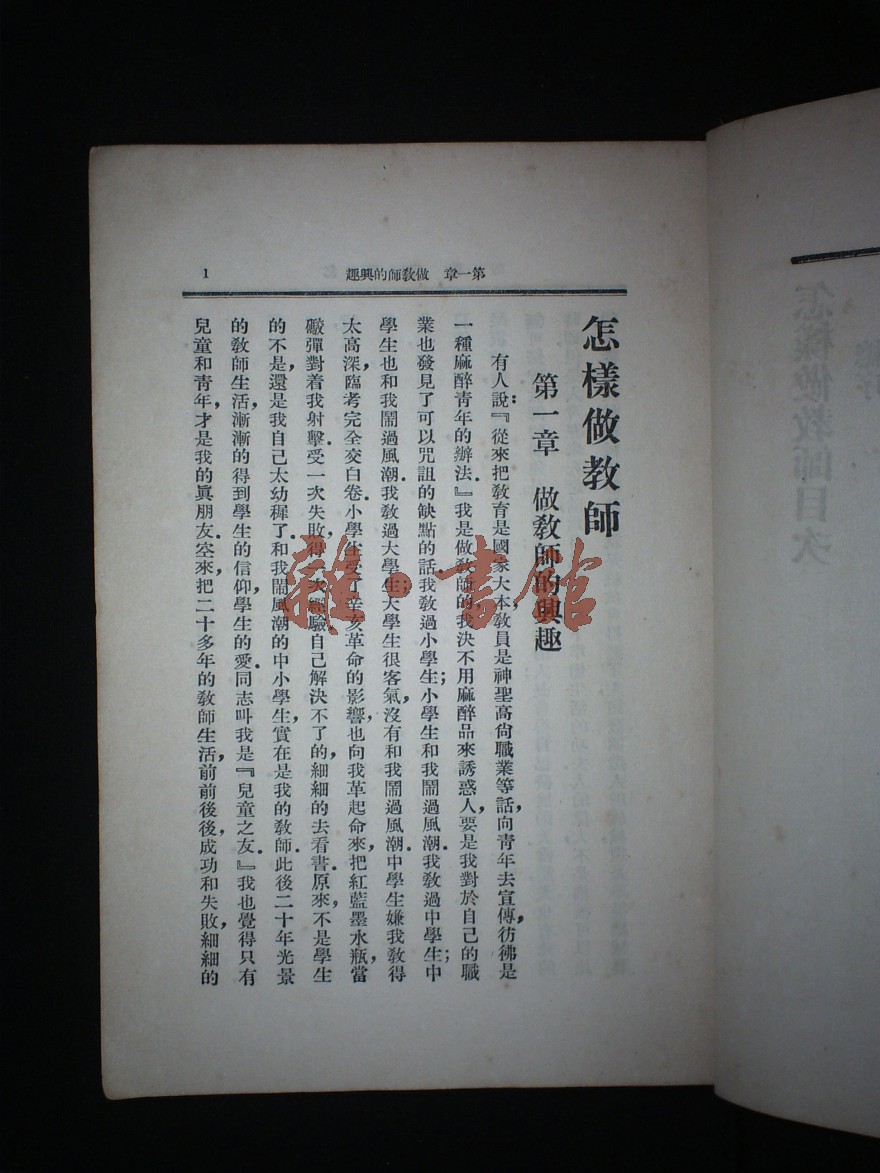 趣興的師教做　章一第
1
怎樣做教師
第一章　做教師的興趣
有人說：『從來把教育是國家大本，教員是神聖高尙職業等話，向靑年去宣傳，彷彿是
一種麻醉靑年的辦法．』我是做教師的，我決不用麻醉品來誘惑人，要是我對於自己的職
業也發見了可以咒詛的缺點的話．我教過小學生；小學生和我鬧過風潮．我教過中學生；中
學生也和我鬧過風潮．我教過大學生，大學生很客氣，沒有和我鬧過風潮．中學生嫌我教得
太高深，臨考完全交白卷．小學生受了辛亥革命的影響，也向我革起命來，把紅藍墨水瓶，當
礮彈對着我射擊．受一次失敗，得一次經驗，自己解決不了的，細細的去看書．原來，不是學生
的不是，還是我自己太幼穉了．和我鬧風潮的中小學生，實在是我的教師．此後二十年光景
的教師生活，漸漸的得到學生的信仰，學生的愛．同志叫我是『兒童之友．』我也覺得只有
兒童和靑年，才是我的眞朋友．空來把二十多年的教師生活，前前後後，成功和失敗，細細的
雜·書館
怎樣做教師目次